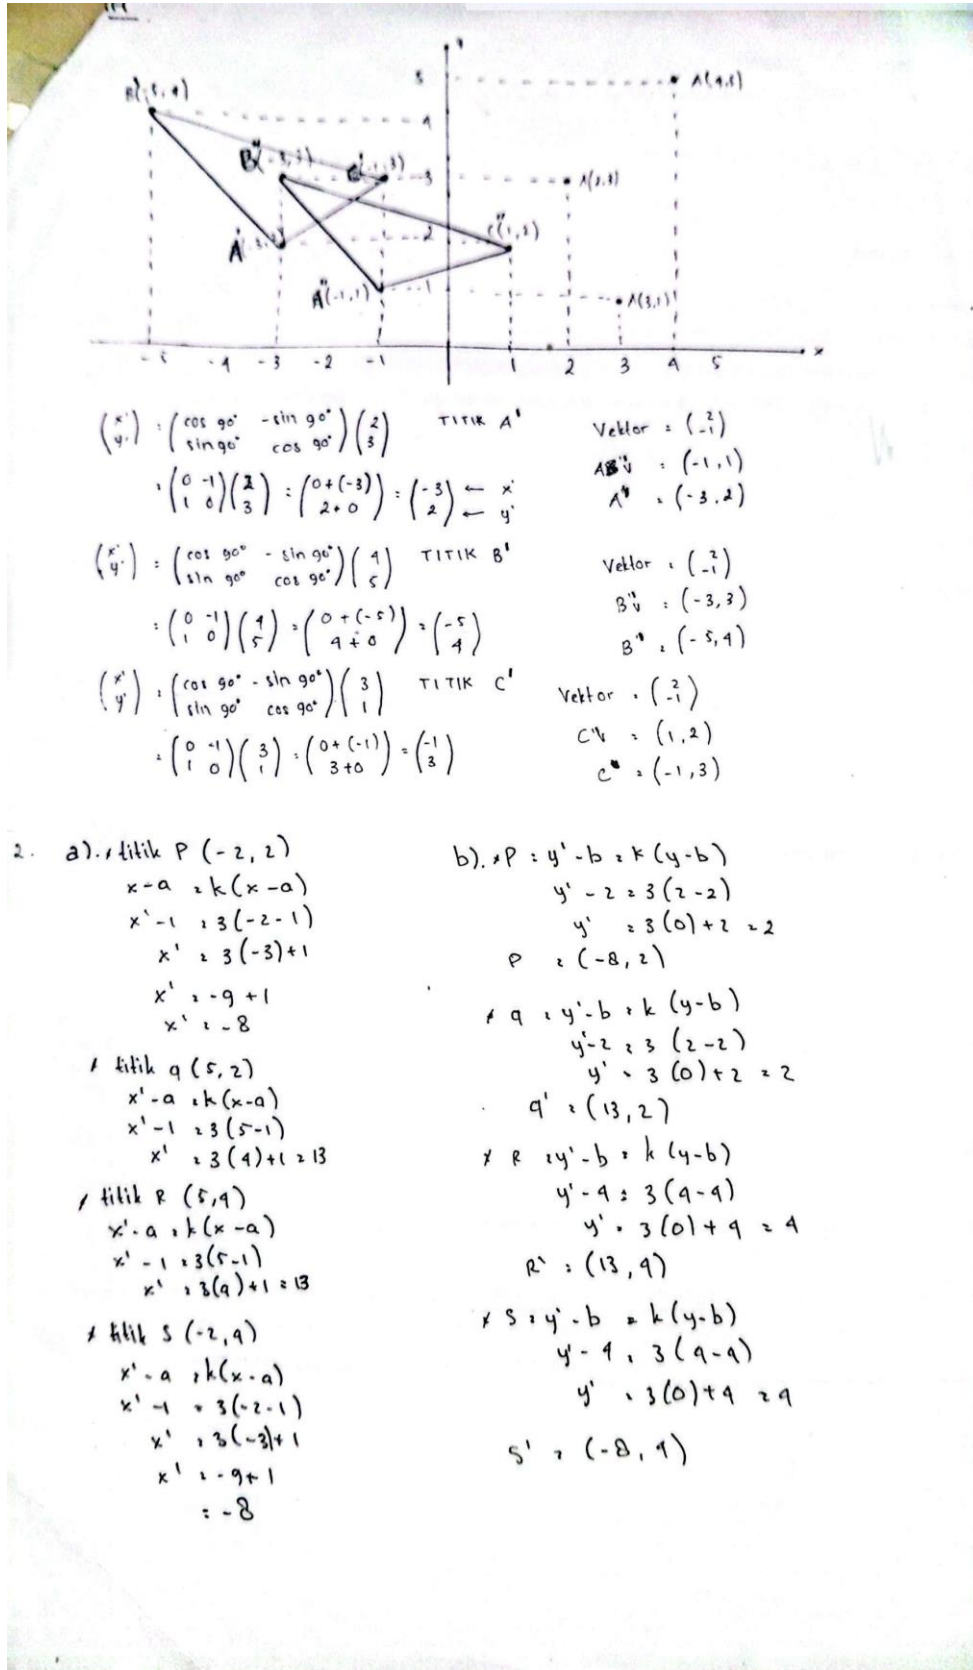 5
A(4,5)
B'(-5,4)
4
B"(-3,3)
C'(-1,3)
3
A(2,3)
A'(-3,2)
2
C"(1,2)
A"(-1,1)
1
A(3,1)
-5 -4 -3 -2 -1 1 2 3 4 5 x
(x' y') = (cos 90° -sin 90° sin 90° cos 90°) (2 3) TITIK A' Vektor = (2 -1)
= (0 -1 1 0) (2 3) = (0+(-3) 2+0) = (-3 2) ← x' ← y'
= (-1,1)
A" = (-3,2)
(x' y') = (cos 90° -sin 90° sin 90° cos 90°) (4 5) TITIK B' Vektor = (2 -1)
= (0 -1 1 0) (4 5) = (0+(-5) 4+0) = (-5 4)
= (-3,3)
B" = (-5,4)
(x' y') = (cos 90° -sin 90° sin 90° cos 90°) (3 1) TITIK C' Vektor = (2 -1)
= (0 -1 1 0) (3 1) = (0+(-1) 3+0) = (-1 3)
= (1,2)
= (-1,3)
2. a). * titik P (-2,2)
x-a = k(x-a)
x'-1 = 3(-2-1)
x' = 3(-3)+1
x' = -9+1
x' = -8
* titik q (5,2)
x'-a = k(x-a)
x'-1 = 3(5-1)
x' = 3(4)+1 = 13
* titik R (5,4)
x'-a = k(x-a)
x'-1 = 3(5-1)
x' = 3(4)+1 = 13
* titik S (-2,4)
x'-a = k(x-a)
x'-1 = 3(-2-1)
x' = 3(-3)+1
x' = -9+1
= -8
b). * P = y'-b = k(y-b)
y'-2 = 3(2-2)
y' = 3(0)+2 = 2
P = (-8,2)
* q = y'-b = k(y-b)
y'-2 = 3(2-2)
y' = 3(0)+2 = 2
q' = (13,2)
* R = y'-b = k(y-b)
y'-4 = 3(4-4)
y' = 3(0)+4 = 4
R' = (13,4)
* S = y'-b = k(y-b)
y'-4 = 3(4-4)
y' = 3(0)+4 = 4
S' = (-8,4)